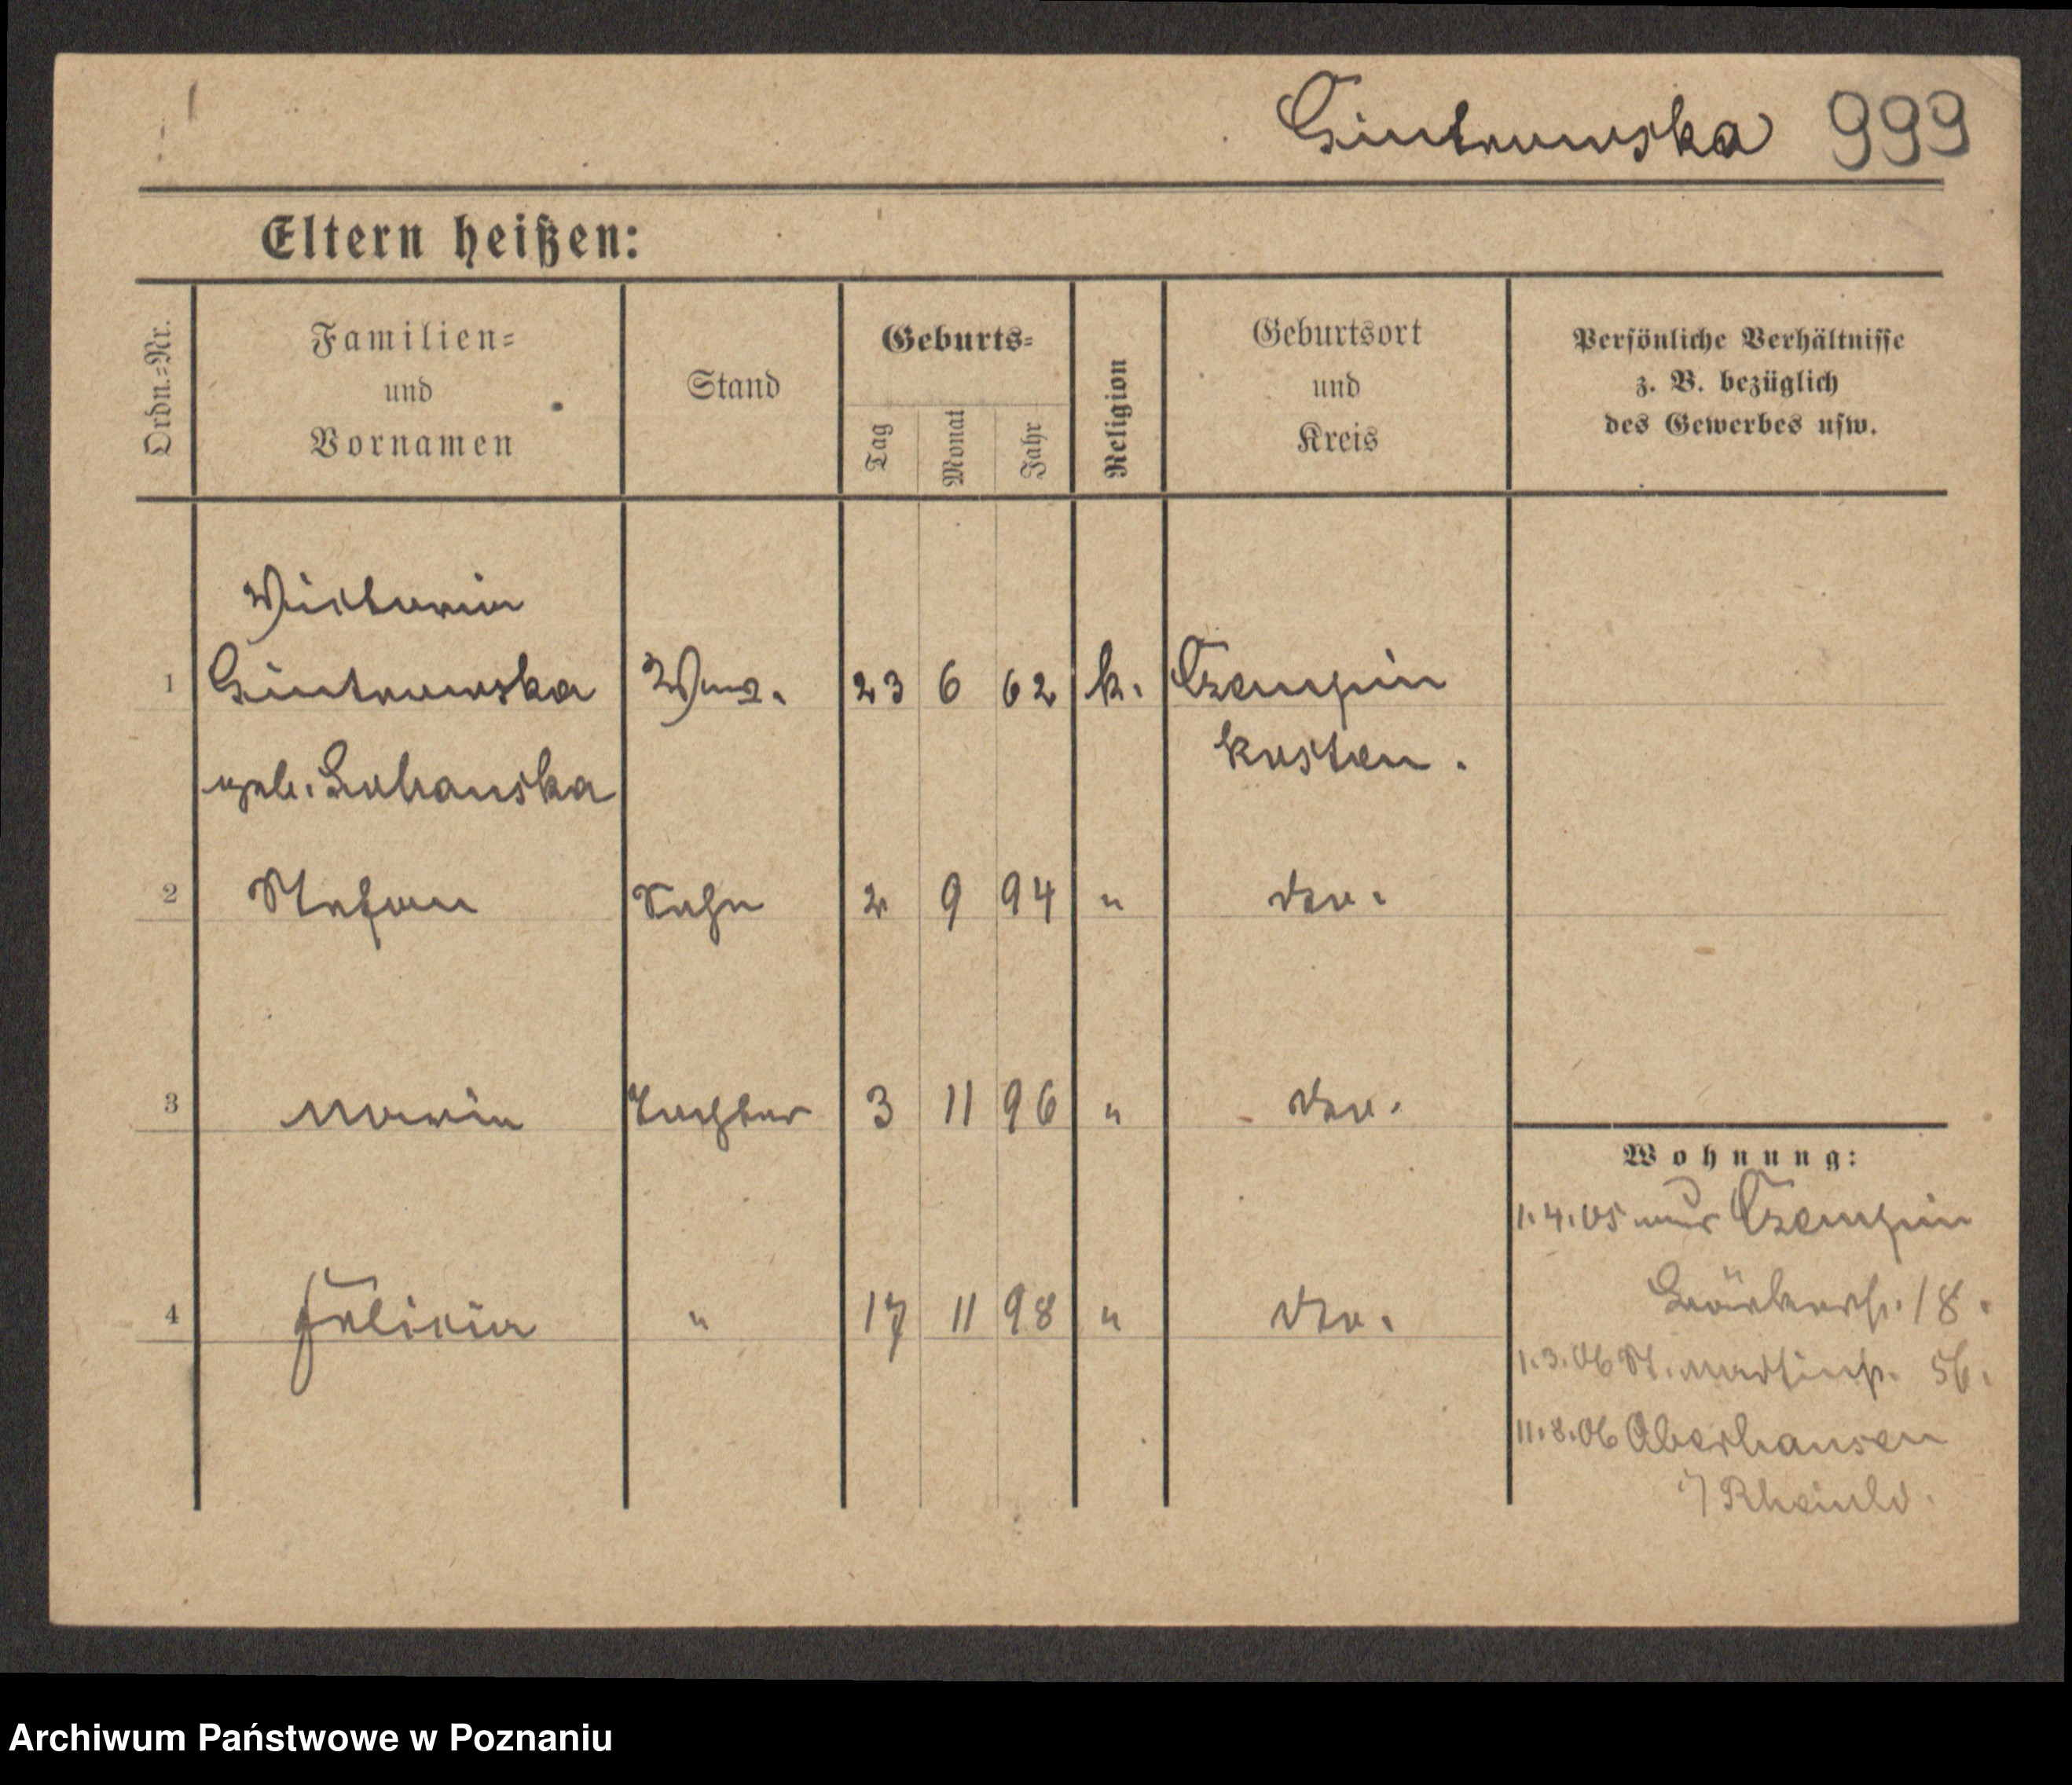 Gintrowska 999
Eltern heißen:
Ordn.-Nr.
Familien-
und
Vornamen
Stand
Geburts-
Tag
Monat
Jahr
Religion
Geburtsort
und
Kreis
Persönliche Verhältnisse
z. B. bezüglich
des Gewerbes usw.
Victoria
1 Gintrowska Wwe. 23 6 62 k. Czempin
Kosten.
geb.
2 Stefan Sohn 2 9 94 " dto.
3 Maria Tochter 3 11 96 " dto.
Wohnung:
1.4.05 aus Czempin
4 Felicia " 17 11 98 " dto.
Bäckerstr. 18.
1.3.06 St. Martinstr. 56.
11.8.06 Oberhausen
i/Rheinld.
Archiwum Państwowe w Poznaniu